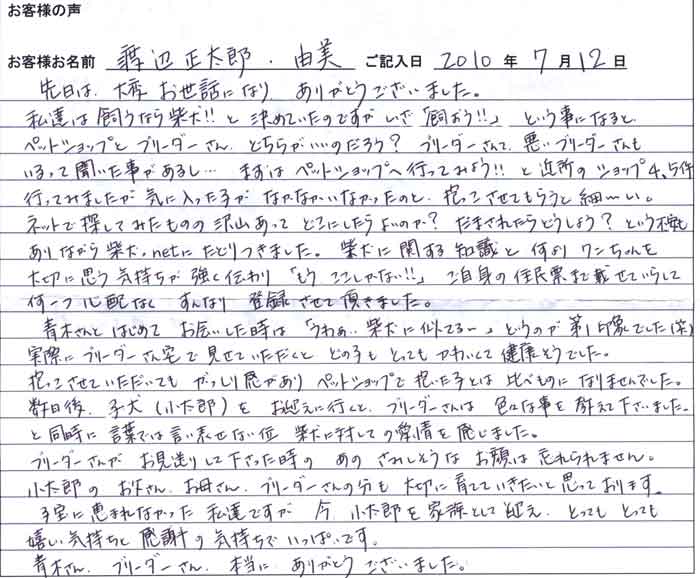 お客様の声
お客様お名前 渡辺正太郎・由美 ご記入日 2010年7月12日
先日は、大変お世話になり ありがとうございました。
私達は飼うなら柴犬!!と決めていたのですがいざ「飼おう!!」という事になると
ペットショップとブリーダーさん、どちらがいいのだろう? ブリーダーさんて、悪いブリーダーさんも
いるって聞いた事があるし… まずはペットショップへ行ってみよう!!と近所のショップ4、5件
行ってみましたが気に入った子がなかなかいなかったのと、抱っこさせてもらうと細〜い。
ネットで探してみたものの沢山あってどこにしたらよいのか? だまされたらどうしよう?という不安も
ありながら柴犬.netにたどりつきました。柴犬に関する知識と何よりワンちゃんを
大切に思う気持ちが強く伝わり「もうここしかない!!」ご自身の住民票まで載せていらして
何一つ心配なくすんなり登録させて頂きました。
青木さんとはじめてお会いした時は「うわぁ、柴犬に似てる〜」というのが第1印象でした(笑)
実際にブリーダーさん宅で見せていただくと どの子もとってもかわいくて健康そうでした。
抱っこさせていただいてもがっしり感がありペットショップで抱いた子とは比べものになりませんでした。
数日後、子犬(小太郎)をお迎えに行くと、ブリーダーさんは色々な事を教えて下さいました。
と同時に言葉では言い表せない位 柴犬に対しての愛情を感じました。
ブリーダーさんがお見送りして下さった時の あのさみしそうなお顔は忘れられません。
小太郎のお父さん、お母さん、ブリーダーさんの分も大切に育てていきたいと思っております。
子宝に恵まれなかった私達ですが 今、小太郎を家族として迎え、とってもとっても
嬉しい気持ちと感謝の気持ちでいっぱいです。
青木さん、ブリーダーさん、本当にありがとうございました。